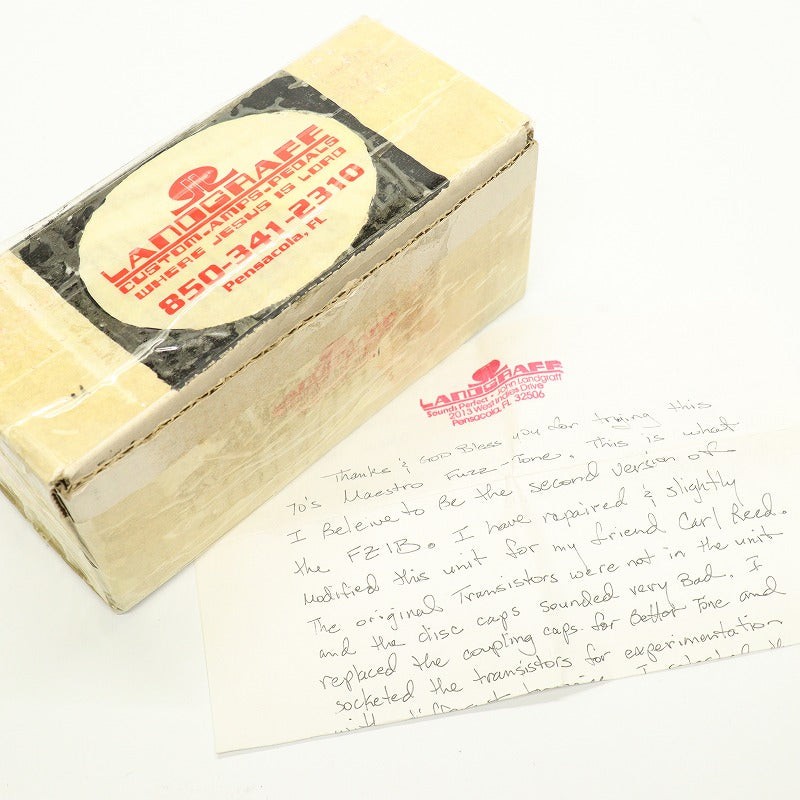 LANDGRAFF
CUSTOM-AMPS-PEDALS
WHERE JESUS IS LORD
850-341-2310
Pensacola, FL
LANDGRAFF
Sound: Perfect - John Landgraff
2013 West Indies Drive
Pensacola, FL 32506
Thanks & GOD Bless you for trying this
70's Maestro Fuzz-Tone. This is what
I Beleive to Be the second version of
the FZ1B. I have repaired & slightly
modified this unit for my friend Carl Reed.
The original Transistors were not in the unit
and the disc caps sounded very Bad. I
replaced the coupling caps for Better Tone and
socketed the transistors for experimentation